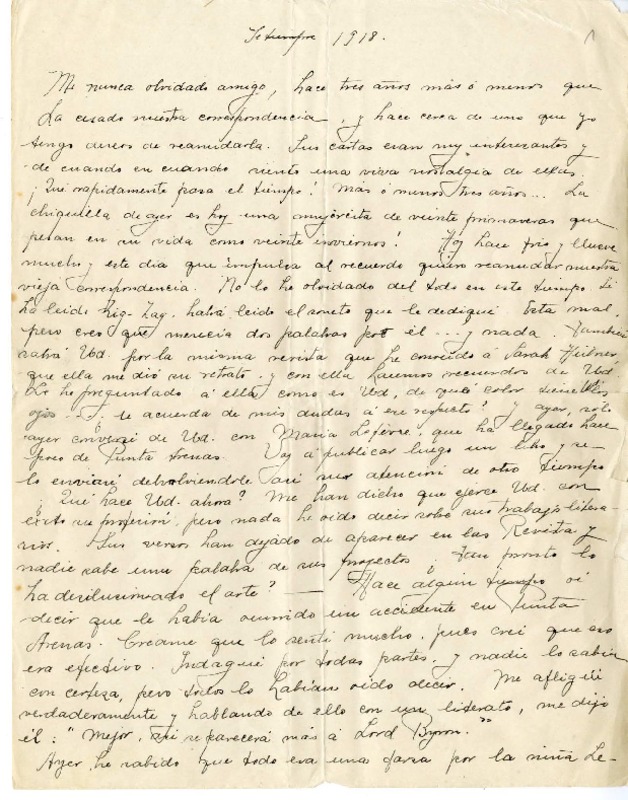 Setiembre 1918.
Mi nunca olvidado amigo, hace tres años más ó menos que
ha cesado nuestra correspondencia, y hace cerca de uno que yo
tengo deseos de reanudarla. Sus cartas eran muy interezantes y
de cuando en cuando siento una viva nostalgia de ellas.
¡Qué rapidamente pasa el tiempo! Más ó menos tres años... La
chiquilla de ayer es hoy una mujercita de veinte primaveras que
pesan en su vida como veinte inviernos! Hoy hace frio y llueve
mucho y este dia que impulsa al recuerdo quiero reanudar nuestra
vieja correspondencia. No lo he olvidado del todo en este tiempo. Si
ha leido Zig-Zag, habrá leido el soneto que le dediqué. Esta mal,
pero creo que merecia dos palabras por él... y nada. Tambien
sabrá Ud. por la misma revista que he conocido á Sarah Hübner,
que ella me dió su retrato y con ella hacemos recuerdos de Ud.
Le he preguntado á ella como es Ud, de qué color tiene los
ojos... ¿Se acuerda de mis dudas á ese respecto? Y ayer, sólo
ayer conversé de Ud. con Maria Lefévre, que ha llegado hace
poco de Punta Arenas. Voy á publicar luego un libro y se
lo enviaré debolviendole asi sus atenciones de otro tiempo
¿Qué hace Ud. ahora? Me han dicho que ejerce Ud. con
éxito su profesión, pero nada he oido decir sobre sus trabajos litera-
rios. Sus versos han dejado de aparecer en las Revistas y
nadie sabe una palabra de sus proyectos ¿Tan pronto lo
ha desilucionado el arte? — Hace algún tiempo oi
decir que le habia ocurrido un accidente en Punta
Arenas. Creame que lo senti mucho, pues crei que eso
era efectivo. Indagué por todas partes, y nadie lo sabia
con certeza, pero todos lo habian oido decir. Me afligié
verdaderamente y hablando de ello con un literato, me dijo
él: "Mejor, asi se parecerá más á Lord Byron."
Ayer he sabido que todo era una farsa por la niña Le-